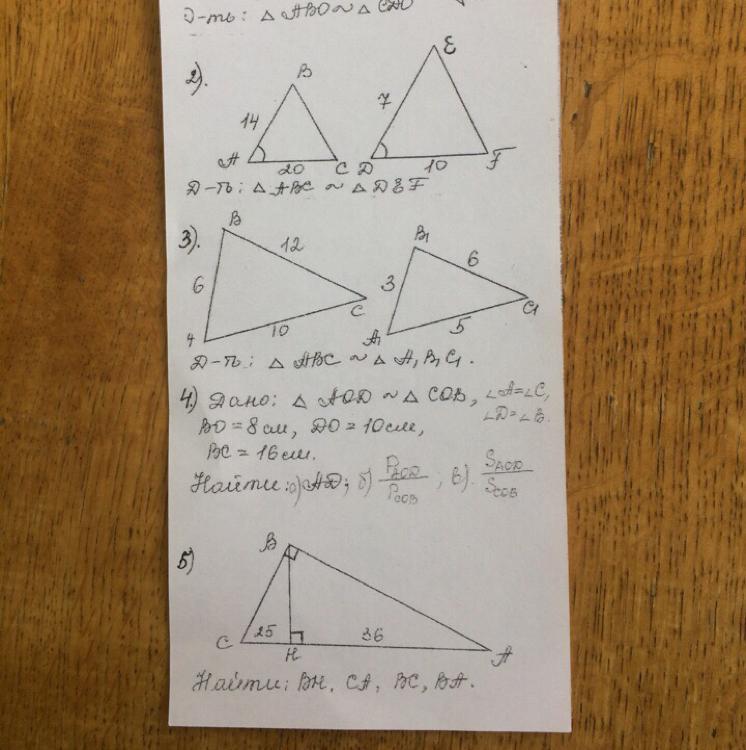 Д-ть: △ ABO ~ △ CDO
2).
B
E
14
7
A
20
C
D
10
F
Д-ть: △ ABC ~ △ DEF
3).
B
12
6
10
C
B₁
6
3
5
A₁
C₁
Д-ть: △ ABC ~ △ A₁B₁C₁.
4.) Дано: △ AOD ~ △ COB, ∠A=∠C,
∠D=∠B.
BO = 8 см, DO = 10 см,
BC = 16 см.
Найти: а) AD; б) P_AOD / P_COB ; в). S_AOD / S_COB
5)
B
C
25
H
36
A
Найти: BH, CA, BC, BA.